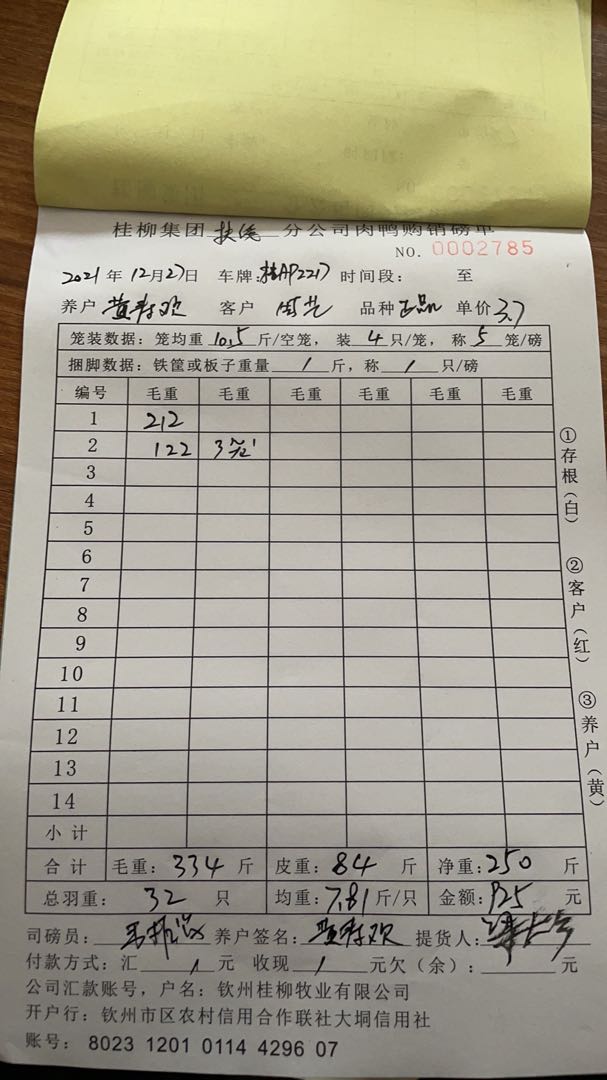 桂柳集团 扶绥 分公司肉鸭购销磅单
NO. 0002785
2021年12月27日 车牌:桂AP2217 时间段: 至
养户 黄寿欢 客户 品种 正品 单价 3.7
笼装数据: 笼均重 10.5 斤/空笼, 装 4 只/笼, 称 5 笼/磅
捆脚数据: 铁筐或板子重量 / 斤, 称 / 只/磅
编号 毛重 毛重 毛重 毛重 毛重 毛重
1 212
2 122 3笼
3
4
5
6
7
8
9
10
11
12
13
14
小计
合计 毛重: 334 斤 皮重: 84 斤 净重: 250 斤
总羽重: 32 只 均重: 7.81 斤/只 金额: 925 元
司磅员: 养户签名: 黄寿欢 提货人:
付款方式: 汇 / 元 收现 / 元欠(余): 元
公司汇款账号, 户名: 钦州桂柳牧业有限公司
开户行: 钦州市区农村信用合作联社大垌信用社
账号: 8023 1201 0114 4296 07
①存根(白)
②客户(红)
③养户(黄)